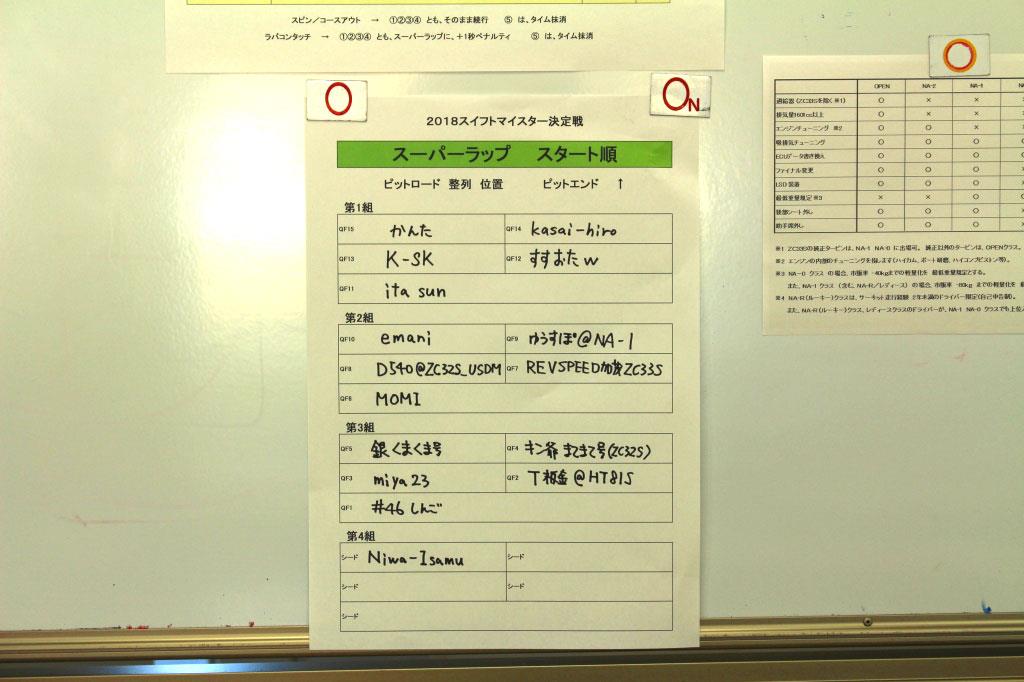 スピン／コースアウト → ①②③④ とも、そのまま続行 ⑤ は、タイム抹消
ラバコンタッチ → ①②③④ とも、スーパーラップに、＋１秒ペナルティ ⑤ は、タイム抹消
O
ON
２０１８スイフトマイスター決定戦
スーパーラップ スタート順
ピットロード 整列 位置 ピットエンド ↑
第1組
QF15 かんた QF14 kasai-hiro
QF13 K-SK QF12 すすおたw
QF11 ita sun
第2組
QF10 emani QF9 ゆうすぽ@NA-1
QF8 D540@ZC32S_USDM QF7 REVSPEED加藤ZC33S
QF6 MOMI
第3組
QF5 銀くまくま号 QF4 キン爺 まてまて号(ZC32S)
QF3 miya23 QF2 T板金@HT81S
QF1 #46しんご
第4組
シード Niwa-Isamu シード
シード シード
シード
O
OPEN NA-2 NA-1
過給器(ZC33Sを除く※1) ○ × ×
排気量1601cc以上 ○ × ×
エンジンチューニング ※2 ○ ○ ×
吸排気チューニング ○ ○ ○
ECUデータ書き換え ○ ○ ○
ファイナル変更 ○ ○ ○
LSD装着 ○ ○ ○
最低重量規定※3 × × ○
後部シート外し ○ ○ ○
助手席外し ○ ○ ○
※1 ZC33Sの純正タービンは、NA-1 NA-0 に出場可。 純正以外のタービンは、OPENクラス。
※2 エンジンの内部のチューニングを指します(ハイカム、ポート研磨、ハイコンプピストン等)。
※3 NA-0 クラス の場合、市販車 -40kgまでの軽量化を 最低重量規定とする。
また、NA-1 クラス (含む、NA-R／レディース) の場合、市販車 -80kg までの軽量化を
※4 NA-R(ルーキー)クラスは、サーキット走行経験 2年未満のドライバー限定(自己申告制)。
また、NA-R(ルーキー)クラス、レディースクラスのドライバーが、NA-1 NA-0 クラスでも上位入